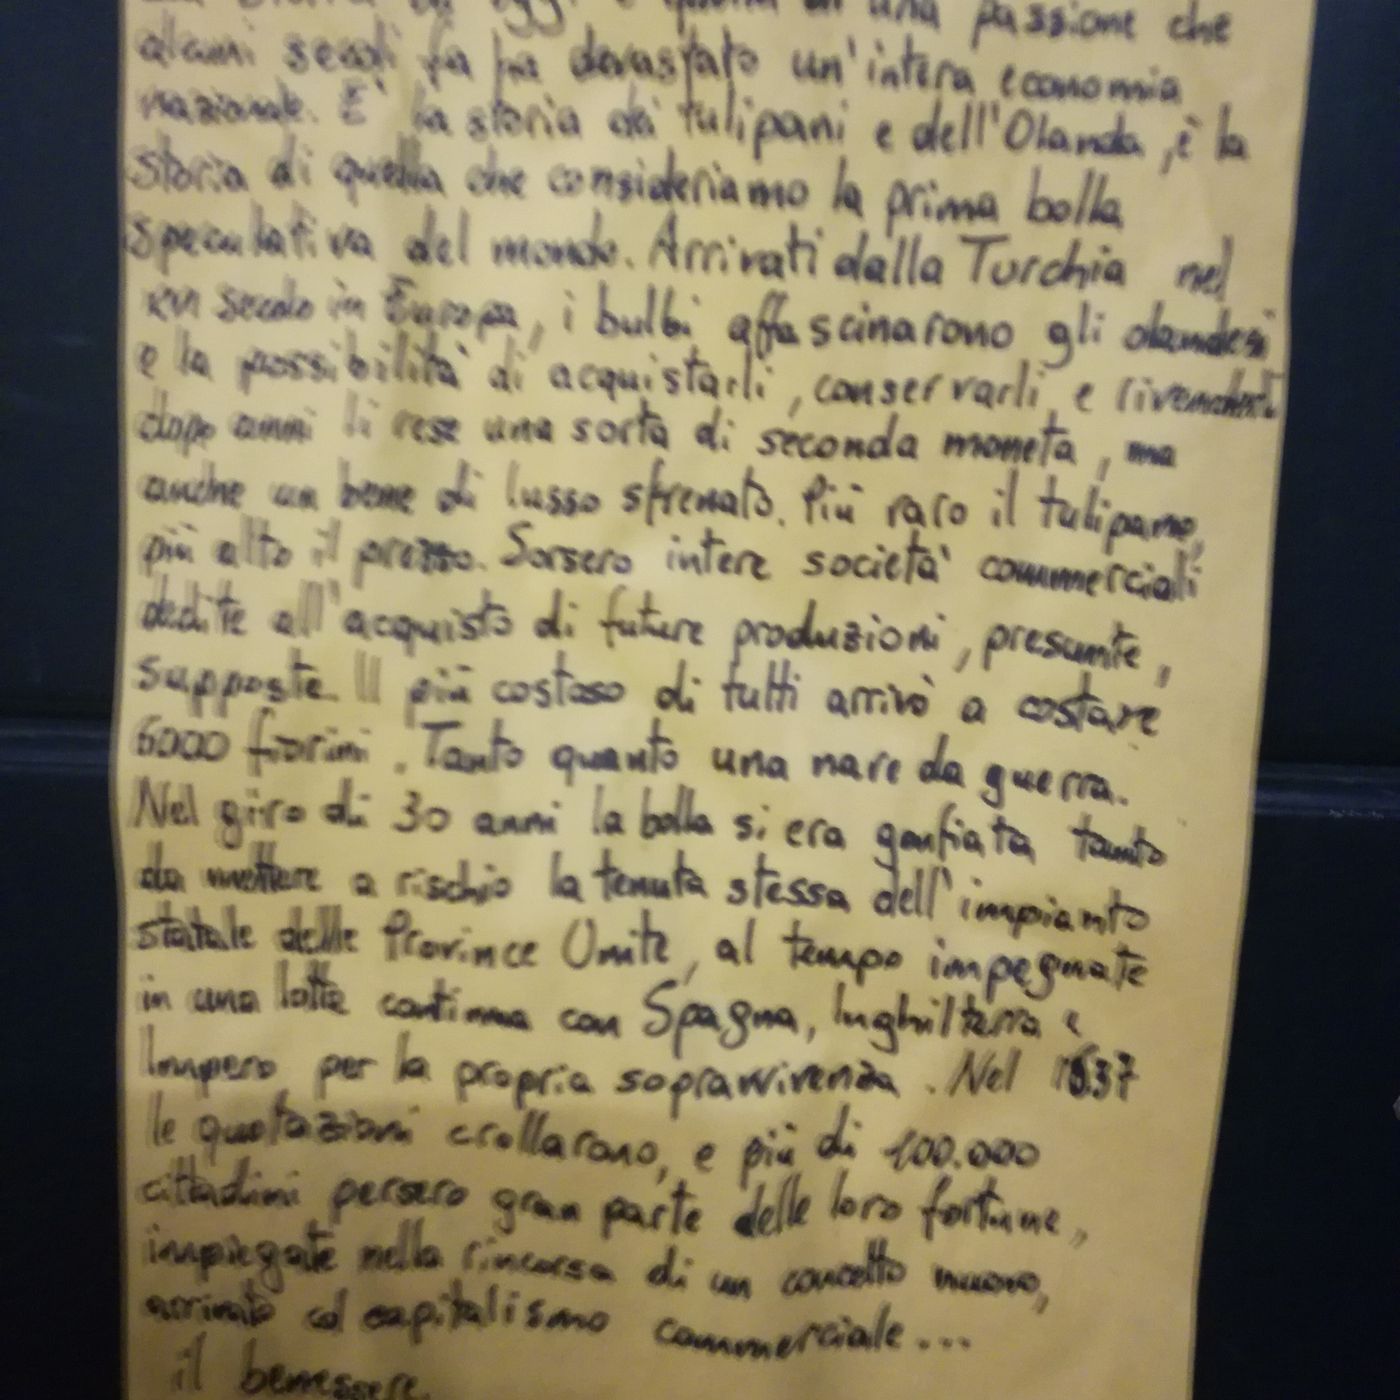 La storia di oggi è quella di una passione che
alcuni secoli fa ha devastato un'intera economia
nazionale. E' la storia dei tulipani e dell'Olanda, è la
storia di quella che consideriamo la prima bolla
speculativa del mondo. Arrivati dalla Turchia nel
XVI secolo in Europa, i bulbi affascinarono gli olandesi
e la possibilità di acquistarli, conservarli e rivenderli
dopo anni li rese una sorta di seconda moneta, ma
anche un bene di lusso sfrenato. Più raro il tulipano,
più alto il prezzo. Sorsero intere società commerciali
dedite all'acquisto di future produzioni, presunte,
supposte. Il più costoso di tutti arrivò a costare
6000 fiorini. Tanto quanto una nave da guerra.
Nel giro di 30 anni la bolla si era gonfiata tanto
da mettere a rischio la tenuta stessa dell'impianto
statale delle Province Unite, al tempo impegnate
in una lotta continua con Spagna, Inghilterra e
Impero per la propria sopravvivenza. Nel 1637
le quotazioni crollarono, e più di 100.000
cittadini persero gran parte delle loro fortune,
impiegate nella rincorsa di un concetto nuovo,
arrivato col capitalismo commerciale...
il benessere.